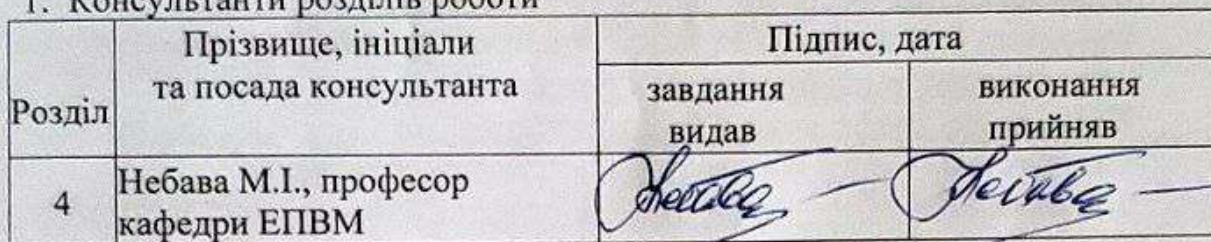 1. Консультанти розділів роботи
Розділ
Прізвище, ініціали
та посада консультанта
Підпис, дата
завдання
видав
виконання
прийняв
4
Небава М.І., професор
кафедри ЕПВМ